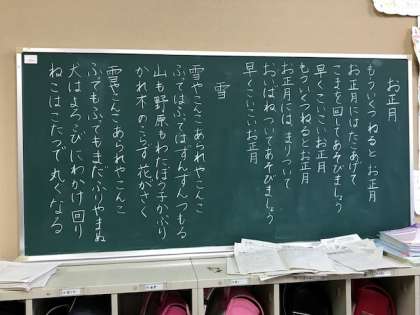 お正月
もういくつねるとお正月
お正月にはたこあげて
こまを回してあそびましょう
早くこいこいお正月
もういくつねるとお正月
お正月にはまりついて
おいばねついてあそびましょう
早くこいこいお正月
雪
雪やこんこあられやこんこ
ふってはふってはずんずんつもる
山も野原もわたぼうしかぶり
かれ木のこらず花がさく
雪やこんこあられやこんこ
ふってもふってもまだふりやまぬ
犬はよろこびにわかけ回り
ねこはこたつで丸くなる